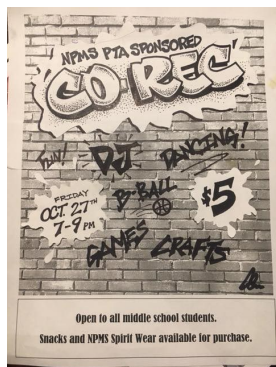 NPMS PTA SPONSORED
CO-REC
FUN!
DJ
DANCING!
FRIDAY
OCT. 27TH
7-9 PM
B-BALL
$5
GAMES
CRAFTS
Open to all middle school students.
Snacks and NPMS Spirit Wear available for purchase.